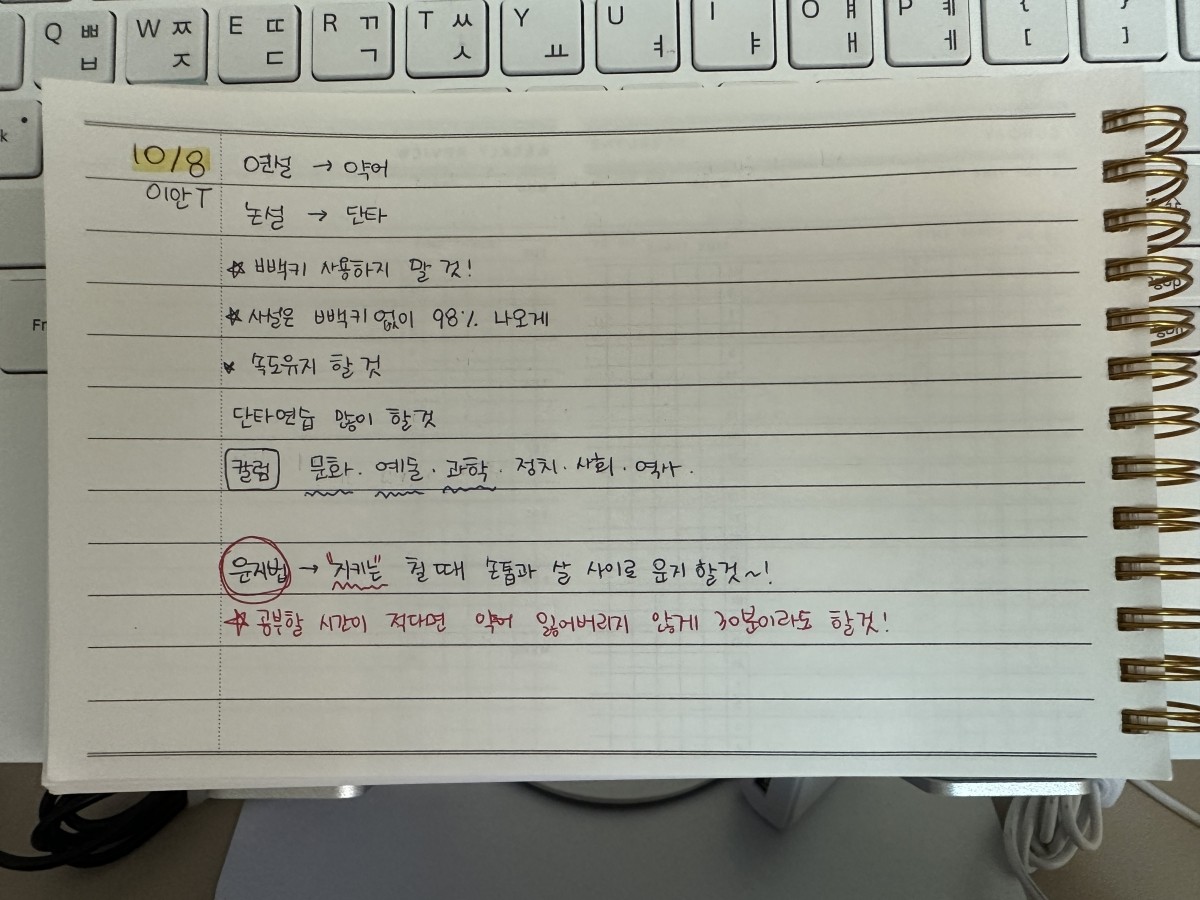 Q ㅃ ㅂ W ㅉ ㅈ E ㄸ ㄷ R ㄲ ㄱ T ㅆ ㅅ Y ㅛ U ㅕ I ㅑ O ㅒ ㅐ P ㅖ ㅔ { [ } ]
10/8
이안T
연설 → 약어
논설 → 단타
☆ 빠빽키 사용하지 말 것!
☆ 사설은 빠빽키 없이 98% 나오게
★ 속도유지 할 것
단타연습 많이 할것
칼럼 문화. 예돌. 과학. 정치. 사회. 역사.
운지법 → "지키는" 칠 때 손톱과 살 사이로 운지 할것~!
☆ 공부할 시간이 적다면 약어 잃어버리지 않게 30분이라도 할것!